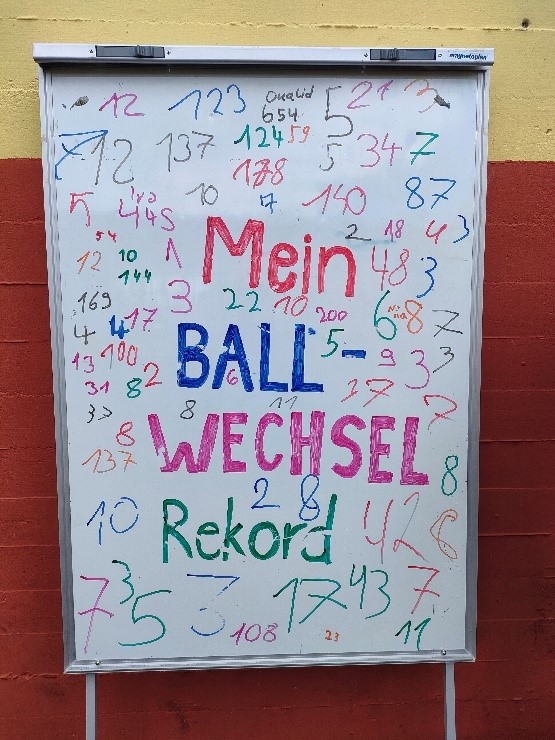 magnetoplan
12 123 Oualid 654 5 21 3
7 12 137 124 59 5 34 7
178
10 7 140 87
5 445 2 18 4 3
54
12 10 1 Mein 48 3
144
169 3 22 10 200 6 8 7
4 4 17
13 100 BALL- 5 9 3 3
31 8 2 6 17
8 11 7
8 WECHSEL
137 8
10 2 8 42 6
Rekord
7 3 5 3 17 43 7
108 23 11